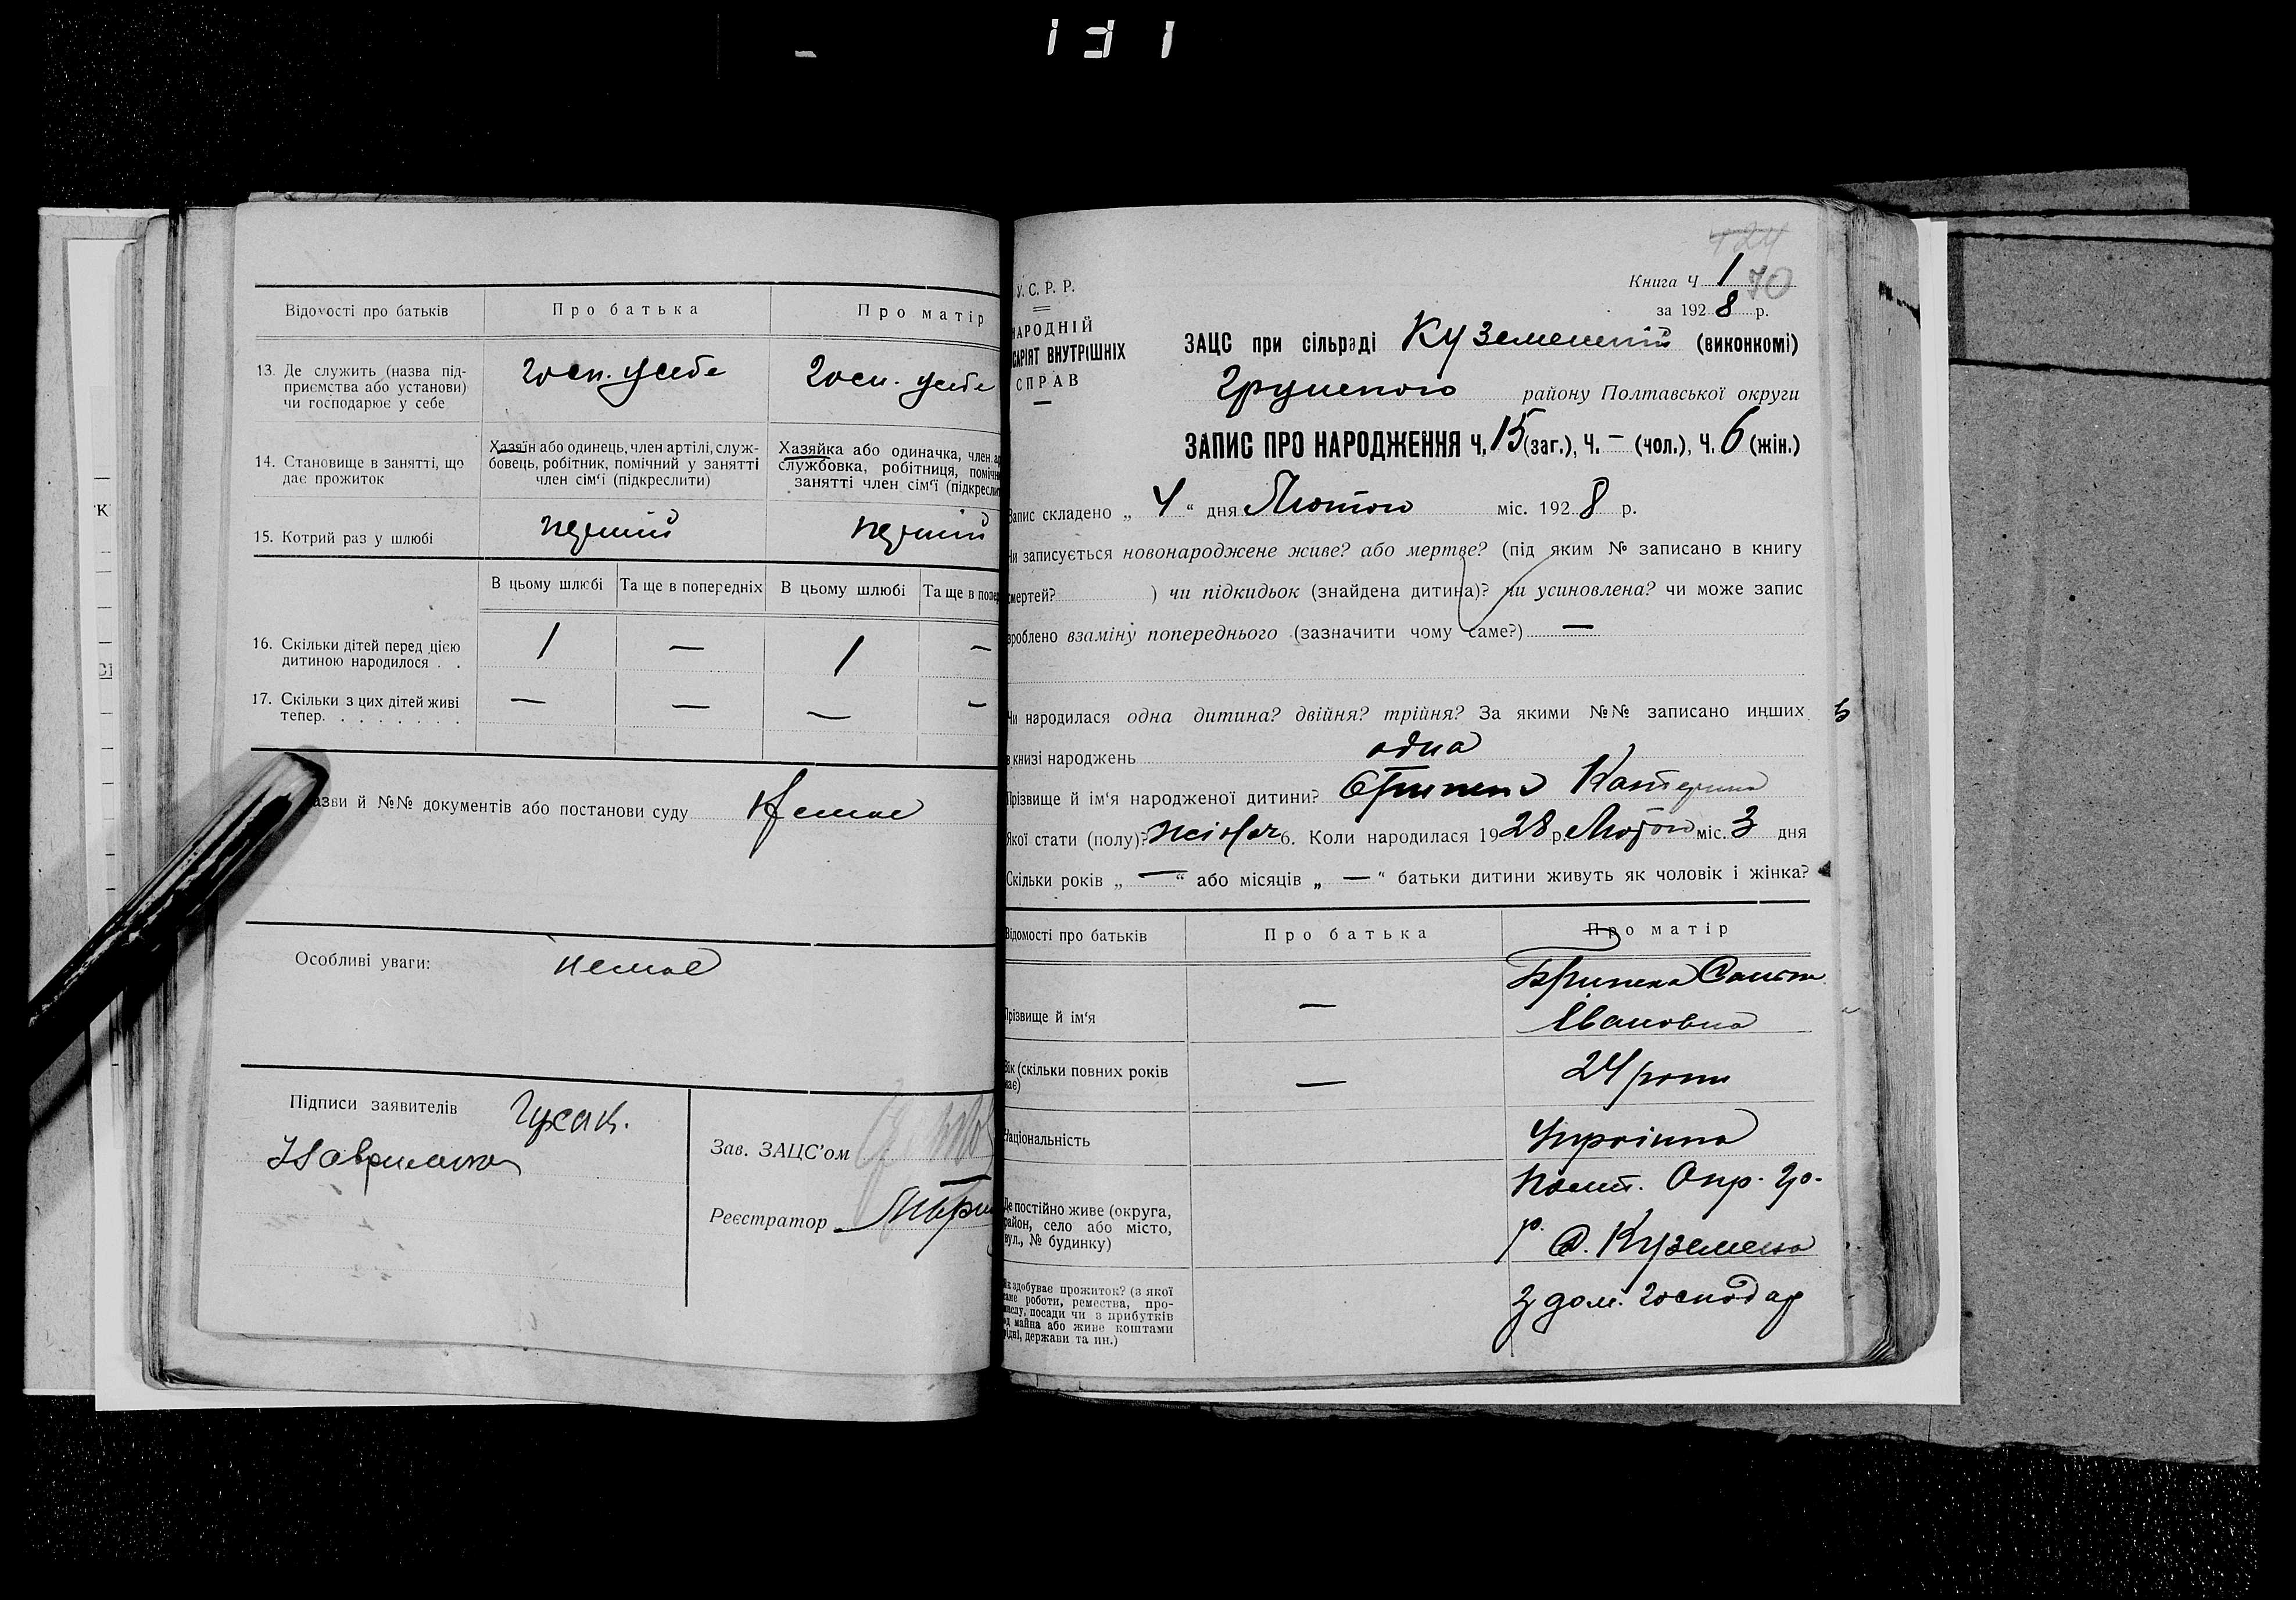 131
Відомості про батьків
Про батька
Про матір
13. Де служить (назва під-
приємства або установи)
чи господарює у себе
Госп. у себе
Госп. у себе
14. Становище в занятті, що
дає прожиток
Хазяїн або одинець, член артілі, служ-
бовець, робітник, помічний у занятті
член сім'ї (підкреслити)
Хазяйка або одиначка, член
службовка, робітниця,
занятті член сім'ї
15. Котрий раз у шлюбі
перший
перший
В цьому шлюбі
Та ще в попередніх
В цьому шлюбі
Та ще в
16. Скільки дітей перед цією
дитиною народилося . .
1
—
1
—
17. Скільки з цих дітей живі
тепер. . . . . . . .
—
—
—
—
й №№ документів або постанови суду
Немає
Особливі уваги:
немає
Підписи заявителів
Зав. ЗАЦС'ом
Реєстратор
У.С.Р.Р.
НАРОДНІЙ
ВНУТРІШНІХ
СПРАВ
70
Книга Ч 1
за 1928 р.
ЗАЦС при сільраді Куземенській (виконкомі)
Груського району Полтавської округи
ЗАПИС ПРО НАРОДЖЕННЯ Ч. 15 (заг.), Ч. — (чол.), Ч. 6 (жін.)
Запис складено „ 4 “ дня Лютого міс. 1928 р.
Чи записується новонароджене живе? або мертве? (під яким № записано в книгу
смертей? ) чи підкидьок (знайдена дитина)? чи усиновлена? чи може запис
зроблено взаміну попереднього (зазначити чому саме?) —
Чи народилася одна дитина? двійня? трійня? За якими №№ записано инших
в книзі народжень одна
Прізвище й ім'я народженої дитини? Катерина
Якої стати (полу)? жіноч 6. Коли народилася 1928 р. Лютого міс. 3 дня
Скільки років „ — “ або місяців „ — “ батьки дитини живуть як чоловік і жінка?
Відомості про батьків
Про батька
Про матір
Прізвище й ім'я
—
Івановна
Вік (скільки повних років
має)
—
24 роки
Національність
Україінка
Де постійно живе (округа,
район, село або місто,
вул., № будинку)
Полт. Окр. Гр.
р. с. Куземена
Як здобуває прожиток? (з якої
саме роботи, ремества, про-
мислу, посади чи з прибутків
од майна або живе коштами
рідні, держави та пн.)
З дом. господар